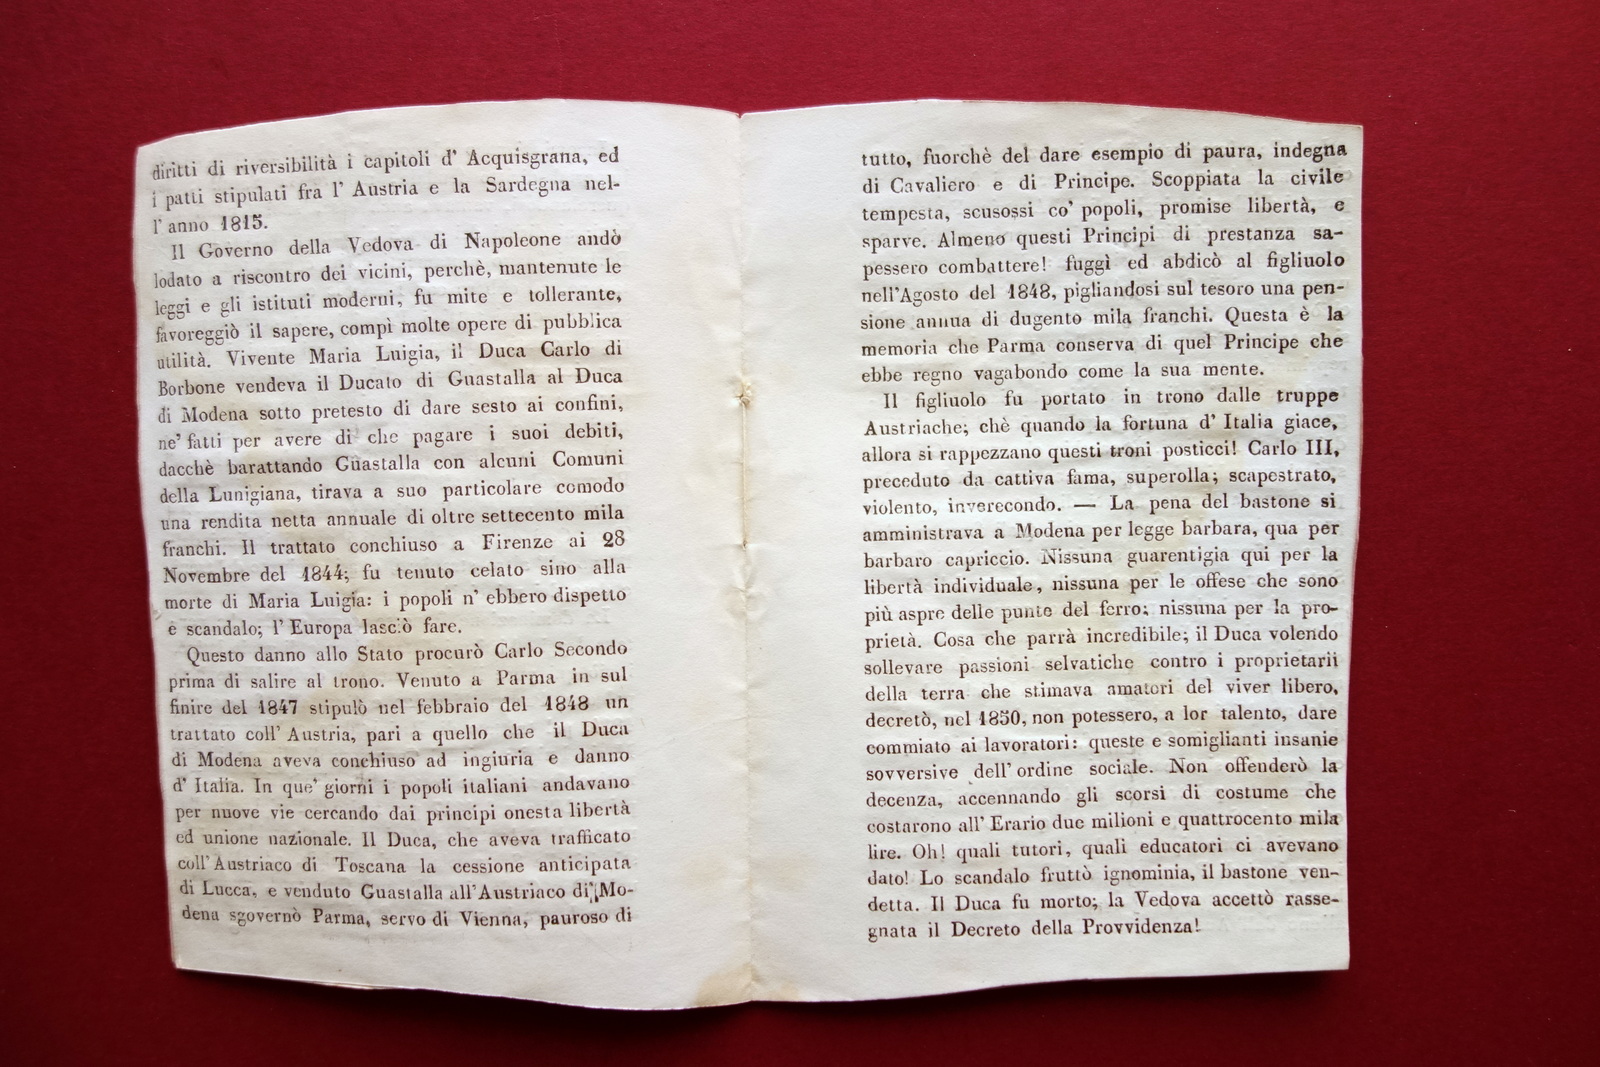 diritti di riversibilità i capitoli d' Acquisgrana, ed
i patti stipulati fra l' Austria e la Sardegna nel-
l' anno 1815.
Il Governo della Vedova di Napoleone andò
lodato a riscontro dei vicini, perchè, mantenute le
leggi e gli istituti moderni, fu mite e tollerante,
favoreggiò il sapere, compì molte opere di pubblica
utilità. Vivente Maria Luigia, il Duca Carlo di
Borbone vendeva il Ducato di Guastalla al Duca
di Modena sotto pretesto di dare sesto ai confini,
ne' fatti per avere di che pagare i suoi debiti,
dacchè barattando Guastalla con alcuni Comuni
della Lunigiana, tirava a suo particolare comodo
una rendita netta annuale di oltre settecento mila
franchi. Il trattato conchiuso a Firenze ai 28
Novembre del 1844; fu tenuto celato sino alla
morte di Maria Luigia: i popoli n' ebbero dispetto
e scandalo; l' Europa lasciò fare.
Questo danno allo Stato procurò Carlo Secondo
prima di salire al trono. Venuto a Parma in sul
finire del 1847 stipulò nel febbraio del 1848 un
trattato coll' Austria, pari a quello che il Duca
di Modena aveva conchiuso ad ingiuria e danno
d' Italia. In que' giorni i popoli italiani andavano
per nuove vie cercando dai principi onesta libertà
ed unione nazionale. Il Duca, che aveva trafficato
coll' Austriaco di Toscana la cessione anticipata
di Lucca, e venduto Guastalla all' Austriaco di Mo-
dena sgovernò Parma, servo di Vienna, pauroso di
tutto, fuorchè del dare esempio di paura, indegna
di Cavaliero e di Principe. Scoppiata la civile
tempesta, scusossi co' popoli, promise libertà, e
sparve. Almeno questi Principi di prestanza sa-
pessero combattere! fuggì ed abdicò al figliuolo
nell'Agosto del 1848, pigliandosi sul tesoro una pen-
sione annua di dugento mila franchi. Questa è la
memoria che Parma conserva di quel Principe che
ebbe regno vagabondo come la sua mente.
Il figliuolo fu portato in trono dalle truppe
Austriache; chè quando la fortuna d' Italia giace,
allora si rappezzano questi troni posticci! Carlo III,
preceduto da cattiva fama, superolla; scapestrato,
violento, inverecondo. — La pena del bastone si
amministrava a Modena per legge barbara, qua per
barbaro capriccio. Nissuna guarentigia qui per la
libertà individuale, nissuna per le offese che sono
più aspre delle punte del ferro; nissuna per la pro-
prietà. Cosa che parrà incredibile; il Duca volendo
sollevare passioni selvatiche contro i proprietarii
della terra che stimava amatori del viver libero,
decretò, nel 1850, non potessero, a lor talento, dare
commiato ai lavoratori: queste e somiglianti insanie
sovversive dell' ordine sociale. Non offenderò la
decenza, accennando gli scorsi di costume che
costarono all' Erario due milioni e quattrocento mila
lire. Oh! quali tutori, quali educatori ci avevano
dato! Lo scandalo fruttò ignominia, il bastone ven-
detta. Il Duca fu morto; la Vedova accettò rasse-
gnata il Decreto della Provvidenza!